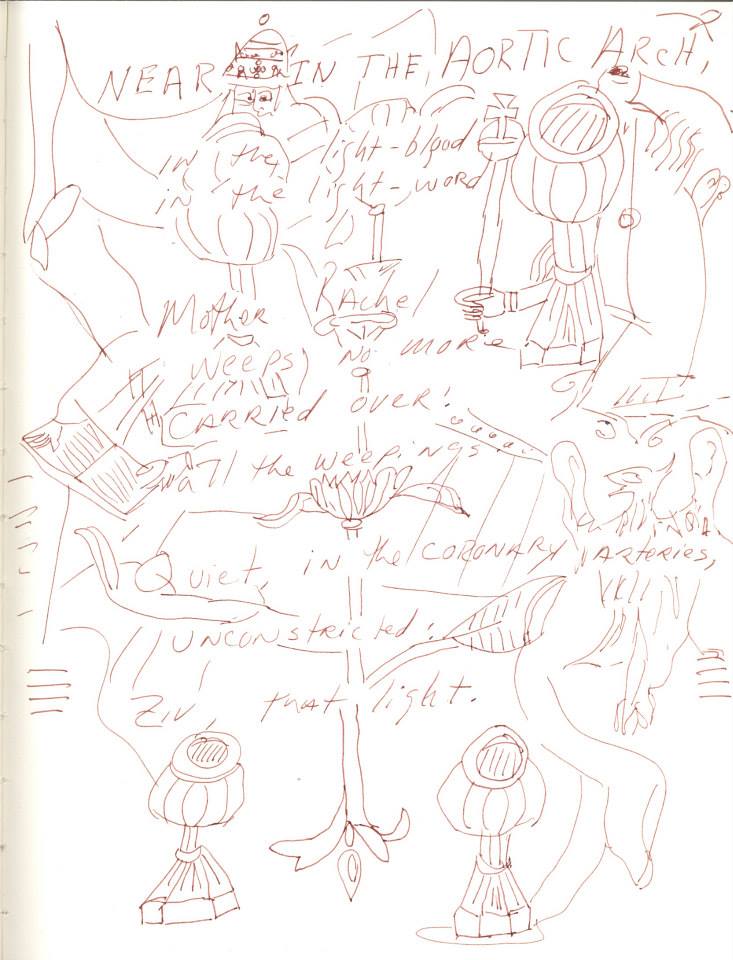 NEAR IN THE AORTIC ARCH,
in the light-blood
in the light-word
Mother Rachel
weeps no more.
CARRIED OVER:
all the weepings.
Quiet, in the CORONARY ARTERIES,
UNCONSTRICTED:
Ziv, that light.